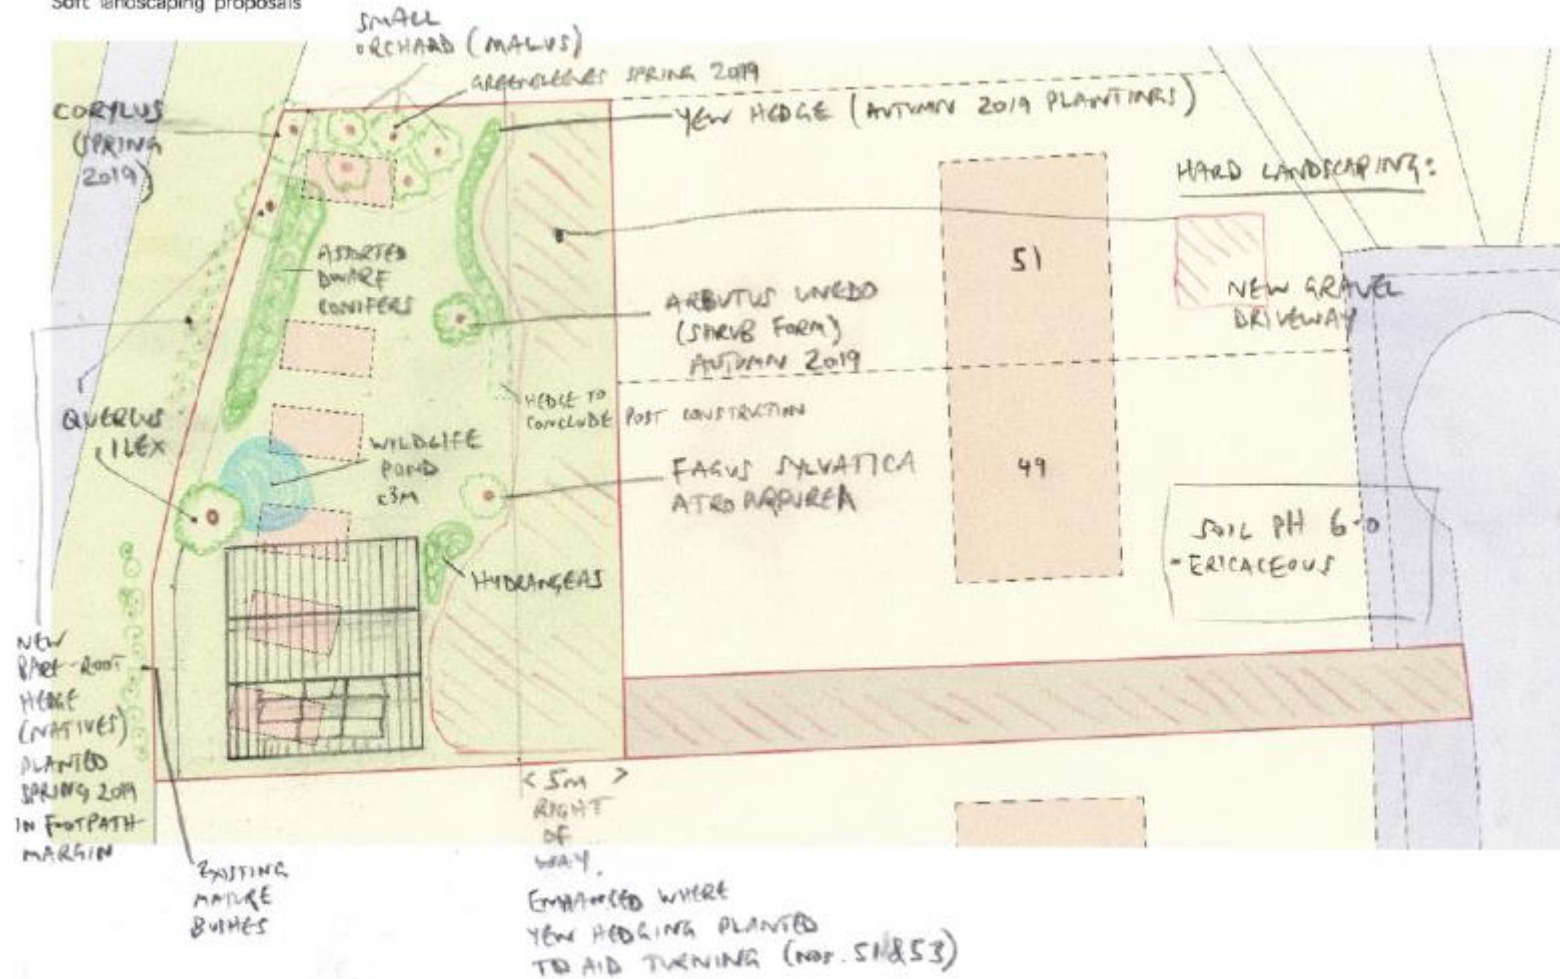 Soft landscaping proposals
SMALL
ORCHARD (MALUS)
SPRING 2019
CORYLUS
(SPRING
2019)
YEW HEDGE (AUTUMN 2019 PLANTINGS)
HARD LANDSCAPING:
NEW GRAVEL
DRIVEWAY
ASSORTED
DWARF
CONIFERS
51
ARBUTUS UNEDO
(SHRUB FORM)
AUTUMN 2019
HEDGE TO
CONCLUDE POST CONSTRUCTION
QUERCUS
ILEX
WILDLIFE
POND
<3M
FAGUS SYLVATICA
ATROPURPUREA
49
SOIL PH 6.0
- ERICACEOUS
HYDRANGEAS
NEW
BARE-ROOT
HEDGE
(NATIVES)
PLANTED
SPRING 2019
IN FOOTPATH
MARGIN
EXISTING
MATURE
BUSHES
< 5m >
RIGHT
OF
WAY.
ENHANCED WHERE
YEW HEDGING PLANTED
TO AID TURNING (NOS. 51&53)